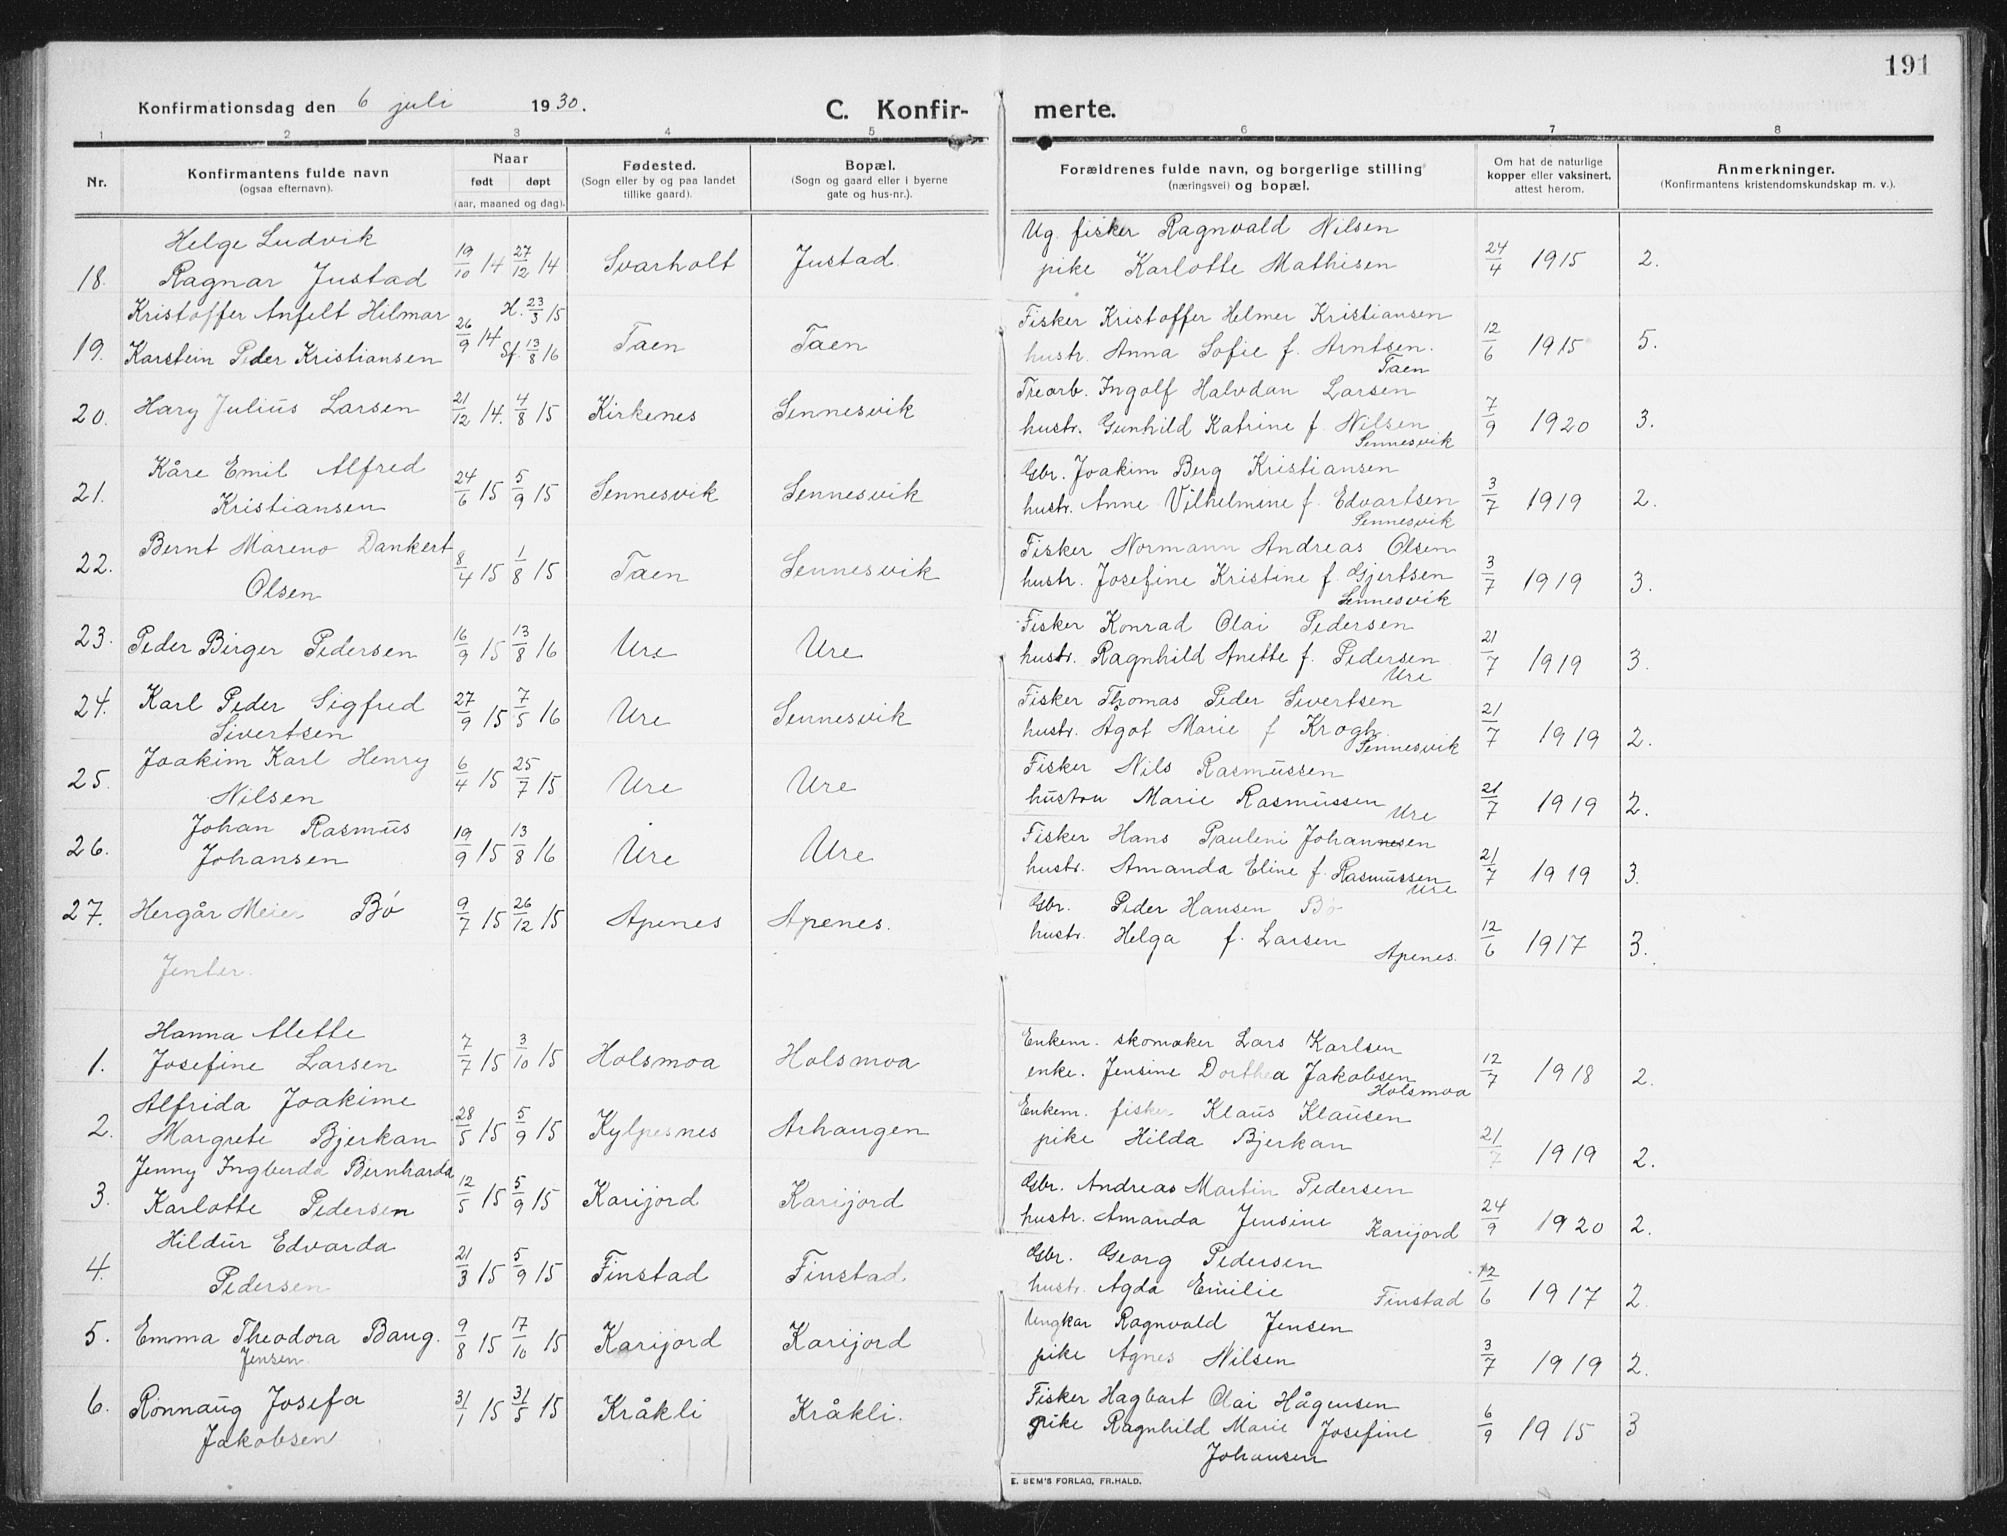 191
Konfirmationsdag den 6 juli 1930.
C. Konfir-merte.
1 2 3 4 5 6 7 8
Nr.
Konfirmantens fulde navn
(ogsaa efternavn).
Naar
født døpt
(aar, maaned og dag).
Fødested.
(Sogn eller by og paa landet
tillike gaard).
Bopæl.
(Sogn og gaard eller i byerne
gate og hus-nr.).
Forældrenes fulde navn, og borgerlige stilling
(næringsvei) og bopæl.
Om hat de naturlige
kopper eller vaksinert,
attest herom.
Anmerkninger.
(Konfirmantens kristendomskundskap m. v.).
Helge Ludvik
18. Ragnar Justad 19/10 14 27/12 14 Svarholt Justad.
Ug. fisker Ragnvald Nilsen
pike Karlotte Mathisen 24/4 1915 2.
Kristoffer Anfelt Hilmar H. 23/3 15
19. Karstein Peder Kristiansen 26/9 14 Sf. 13/8 16 Taen Taen
Fisker Kristoffer Helmer Kristiansen
hustr. Anna Sofie f. Arntsen. 12/6 1915 5.
Taen
20. Hary Julius Larsen 21/12 14. 4/8 15 Kirkenes Sennesvik
Trearb. Ingolf Halvdan Larsen
hustr. Gunhild Katrine f. Nilsen 7/9 1920 3.
Sennesvik
Kåre Emil Alfred
21. Kristiansen 24/6 15 5/9 15 Sennesvik Sennesvik
Gbr. Joakim Berg Kristiansen
hustr. Anne Vilhelmine f. Edvartsen 3/7 1919 2.
Sennesvik
Bernt Mareno Dankert
22. Olsen 8/4 15 1/8 15 Taen Sennesvik
Fisker Normann Andreas Olsen
hustr. Josefine Kristine f. Gjertsen 3/7 1919 3.
Sennesvik
23. Peder Birger Pedersen 16/9 15 13/8 16 Ure Ure
Fisker Konrad Olai Pedersen
hustr. Ragnhild Anette f. Pedersen 21/7 1919 3.
Ure
24. Karl Peder Sigfred
Sivertsen 27/9 15 7/5 16 Ure Sennesvik
Fisker Thomas Peder Sivertsen
hustr. Agot Marie f Krogh. 21/7 1919 2.
Sennesvik
Joakim Karl Henry
25. Nilsen 6/4 15 25/7 15 Ure Ure
Fisker Nils Rasmussen
hustru Marie Rasmussen 21/7 1919 2.
Ure
Johan Rasmus
26. Johansen 19/9 15 13/8 16 Ure Ure
Fisker Hans Pauleni Johannesen
hustr. Amanda Eline f. Rasmussen 21/7 1919 3.
Ure
27. Hergår Meier Bö 9/7 15 26/12 15 Apenes Apenes.
Gbr. Peder Hansen Bö
hustr. Helga f. Larsen 12/6 1917 3.
Apenes.
Jenter.
Hanna Alette
1. Josefine Larsen 7/7 15 3/10 15 Holsmoa Holsmoa
Enkem. skomaker Lars Karlsen
enke. Jensine Dorthea Jakobsen 12/7 1918 2.
Holsmoa
Alfrida Joakime
2. Margrete Bjerkan 28/5 15 5/9 15 Kylpesnes Arhaugen
Enkem. fisker Klaus Klausen
pike Hilda Bjerkan 21/7 1919 2.
Jenny Ingberda Bernharda
3. Karlotte Pedersen 12/5 15 5/9 15 Karijord Karijord
Gbr. Andreas Martin Pedersen
hustr. Amanda Jensine Karijord 24/9 1920 2.
Hildur Edvarda
4. Pedersen 21/3 15 5/9 15 Finstad Finstad
Gbr. Georg Pedersen
hustr. Agda Emilie Finstad 12/6 1917 2.
5. Emma Theodora Baug. 9/8 15 17/10 15 Karijord Karijord
Jensen
Ungkar Ragnvald Jensen
pike Agnes Nilsen 3/7 1919 2.
6. Rønnaug Josefa
Jakobsen 31/1 15 31/5 15 Kråkli Kråkli.
Fisker Hagbart Olai Hågensen
pike Ragnhild Marie Josefine 6/9 1915 3
Johansen
E. SEM'S FORLAG, FR.HALD.